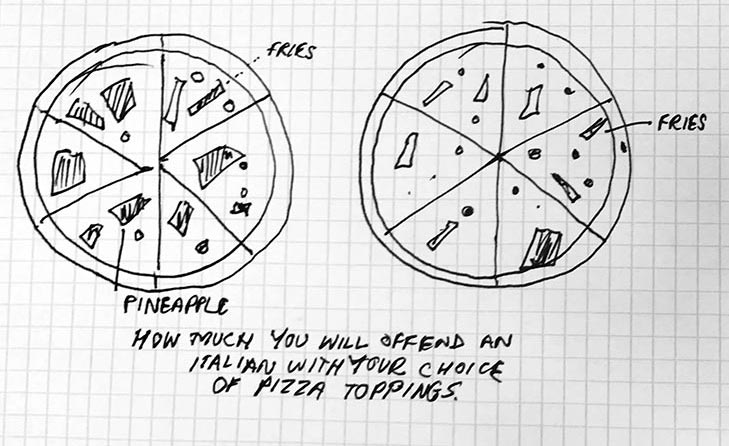 FRIES
FRIES
PINEAPPLE
HOW MUCH YOU WILL OFFEND AN
ITALIAN WITH YOUR CHOICE
OF PIZZA TOPPINGS.